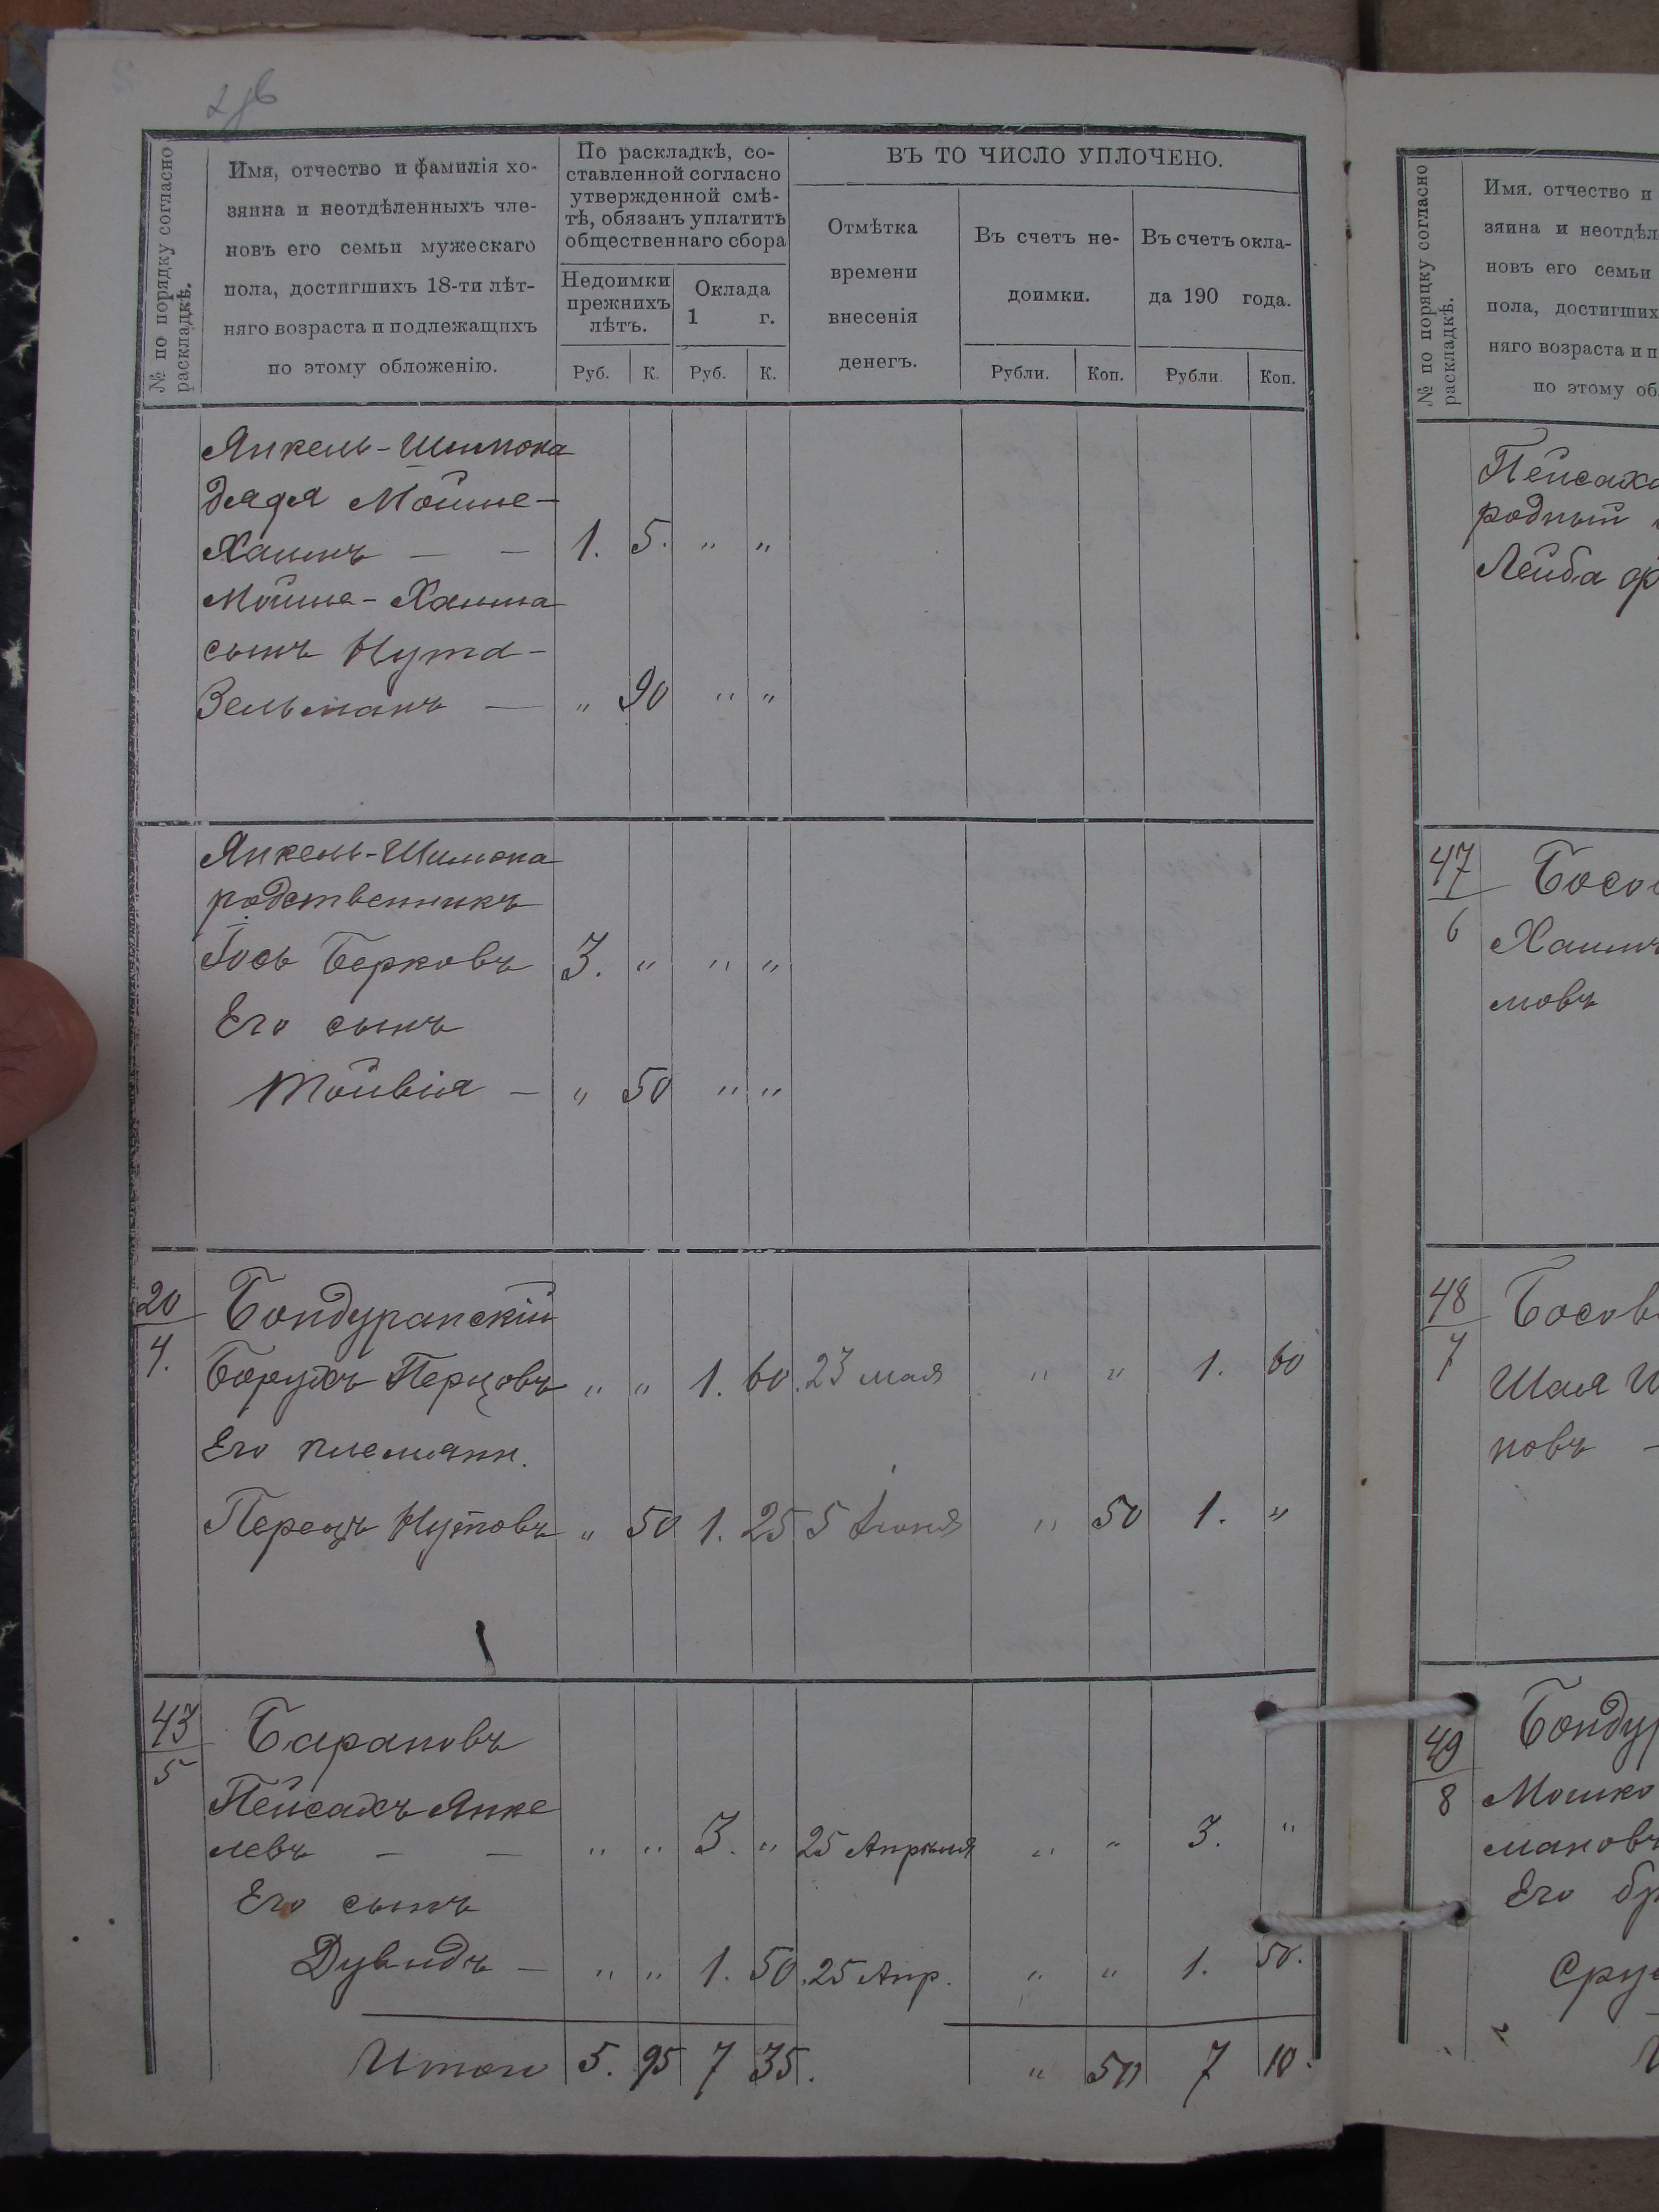 № по порядку согласно
раскладкѣ.
Имя, отчество и фамилія хо-
зяина и неотдѣленныхъ чле-
новъ его семьи мужескаго
пола, достигшихъ 18-ти лѣт-
няго возраста и подлежащихъ
по этому обложенію.
По раскладкѣ, со-
ставленной согласно
утвержденной смѣ-
тѣ, обязанъ уплатить
общественнаго сбора
Недоимки
прежнихъ
лѣтъ.
Оклада
1 г.
Руб. К. Руб. К.
ВЪ ТО ЧИСЛО УПЛОЧЕНО.
Отмѣтка
времени
внесенія
денегъ.
Въ счетъ не-
доимки.
Въ счетъ окла-
да 190 года.
Рубли. Коп. Рубли. Коп.
Янкель-Шимона
дядя Мойше-
Хаимъ — — 1. 5. " "
Мойше-Хаима
сынъ Нута-
Зельманъ — " 90 " "
Янкель-Шимона
родственникъ
Іось Берковъ 3. " " "
Его сынъ
Тойвія — " 50 " "
20/4. Бондуранскій
Борухъ Перцовъ " " 1. 60. 23 мая " " 1. 60
Его племянн.
Перецъ Нутовъ " 50 1. 25 5 Іюня " 50 1. "
43/5 Барановъ
Пейсахъ Янке
левъ — — " " 3. " 25 Апрѣля " " 3. "
Его сынъ
Дувидъ — " " 1. 50. 25 Апр. " " 1. 50.
Итого 5. 95 7 35. " 50 7 10.
№ по порядку согласно
раскладкѣ.
Имя. отчество и
зяина и неотдѣл
новъ его семьи
пола, достигших
няго возраста и п
по этому об
Пейсаха
родный
Лейба
47/6 Босо
Хаимъ
мовъ
48/7 Босов
Шая
новъ —
49/8 Бонду
Мошко
мановъ
Его бр
Сру